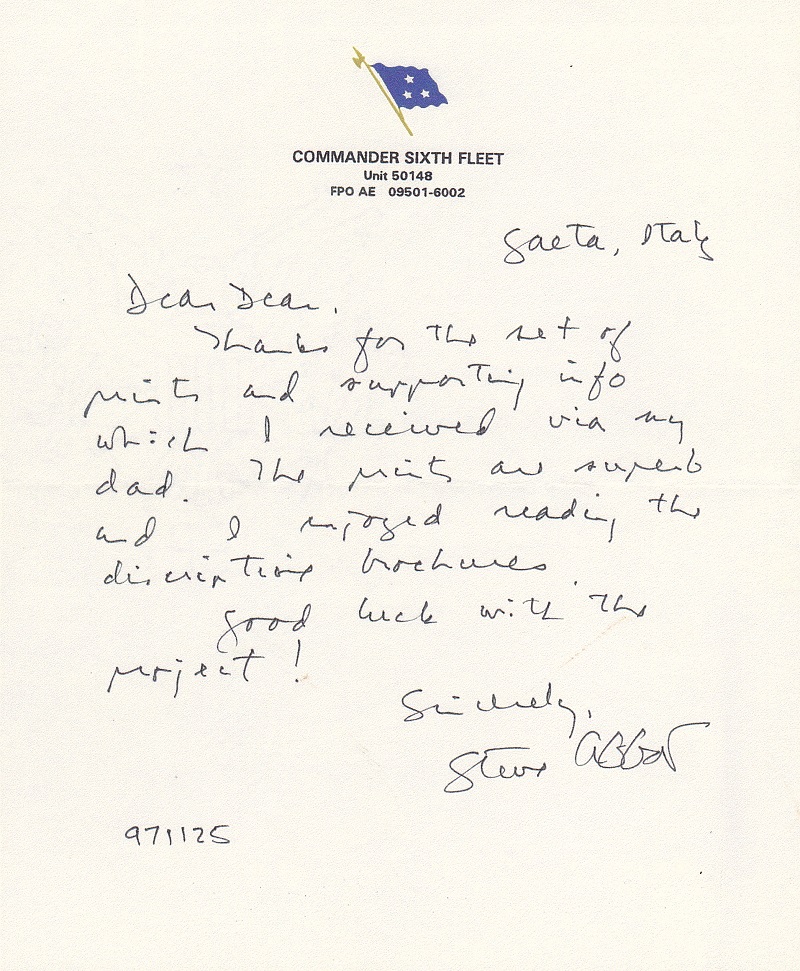 COMMANDER SIXTH FLEET
Unit 50148
FPO AE 09501-6002
Gaeta, Italy
Dear Dean,
Thanks for the set of
prints and supporting info
which I received via my
dad. The prints are superb
and I enjoyed reading the
discriptive brochures.
Good luck with the
project!
Sincerely,
Steve Abbot
971125